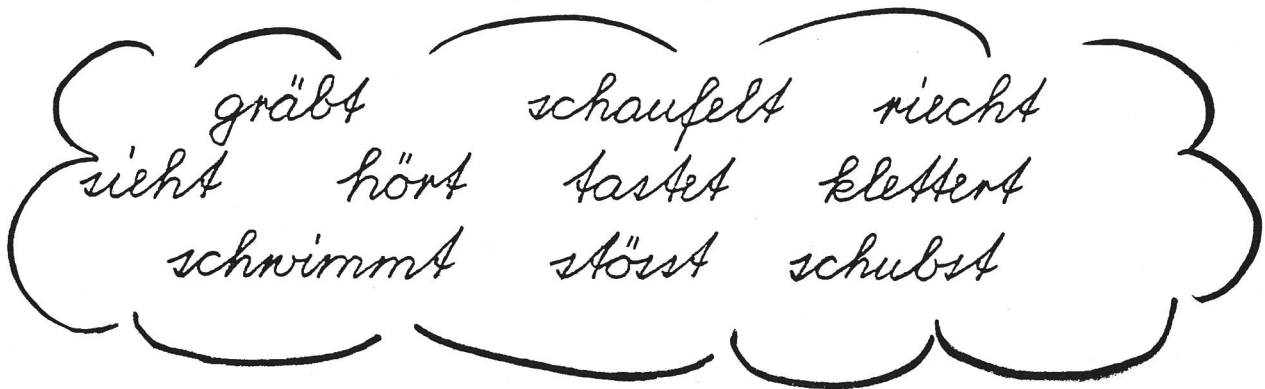 gräbt schaufelt riecht
sieht hört tastet klettert
schwimmt stösst schubst